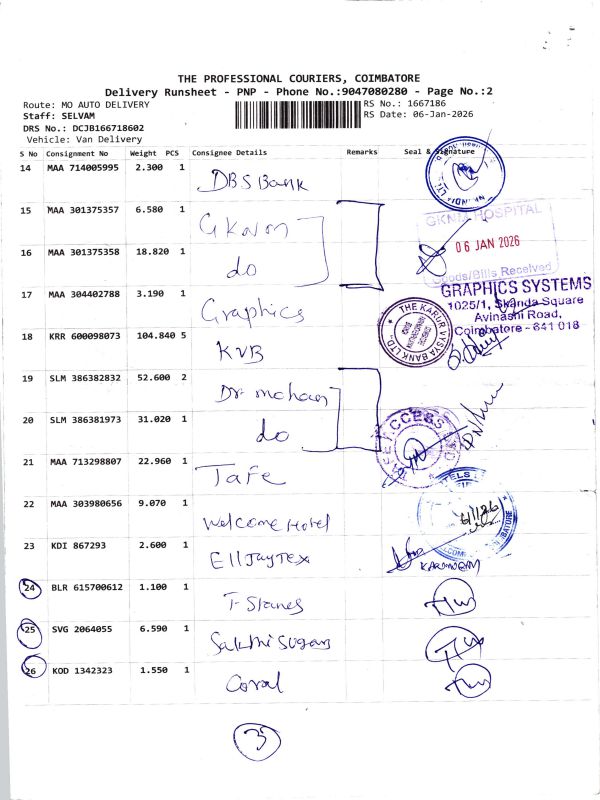 THE PROFESSIONAL COURIERS, COIMBATORE
Delivery Runsheet - PNP - Phone No.:9047080280 - Page No.:2
Route: MO AUTO DELIVERY RS No.: 1667186
Staff: SELVAM RS Date: 06-Jan-2026
DRS No.: DCJB166718602
Vehicle: Van Delivery
S No Consignment No Weight PCS Consignee Details Remarks Seal & Signature
14 MAA 714005995 2.300 1 DBS Bank
15 MAA 301375357 6.580 1 GKNM
GKNM HOSPITAL
06 JAN 2026
Goods/Bills Received
16 MAA 301375358 18.820 1 do
17 MAA 304402788 3.190 1 Graphics
GRAPHICS SYSTEMS
1025/1, Skanda Square
Avinashi Road,
Coimbatore - 641 018
18 KRR 600098073 104.840 5 KVB
THE KARUR VYSYA BANK LTD.
19 SLM 386382832 52.600 2 Dr. mohans
20 SLM 386381973 31.020 1 do
21 MAA 713298807 22.960 1 Tafe
22 MAA 303980656 9.070 1 Welcome Hotel
23 KDI 867293 2.600 1 Ell Jay Tex
24 BLR 615700612 1.100 1 T-Stanes
25 SVG 2064055 6.590 1 Sakthi Sugars
26 KOD 1342323 1.550 1 Coral
3